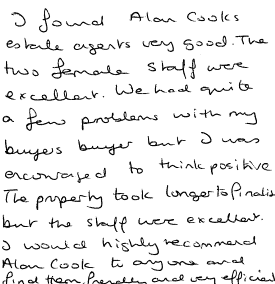 I found Alan Cooks
estate agents very good. The
two female staff were
excellent. We had quite
a few problems with my
buyers buyer but I was
encouraged to think positive
The property took longer to finalise
but the staff were excellent.
I would highly recommend
Alan Cook to anyone and
find them friendly and very efficient